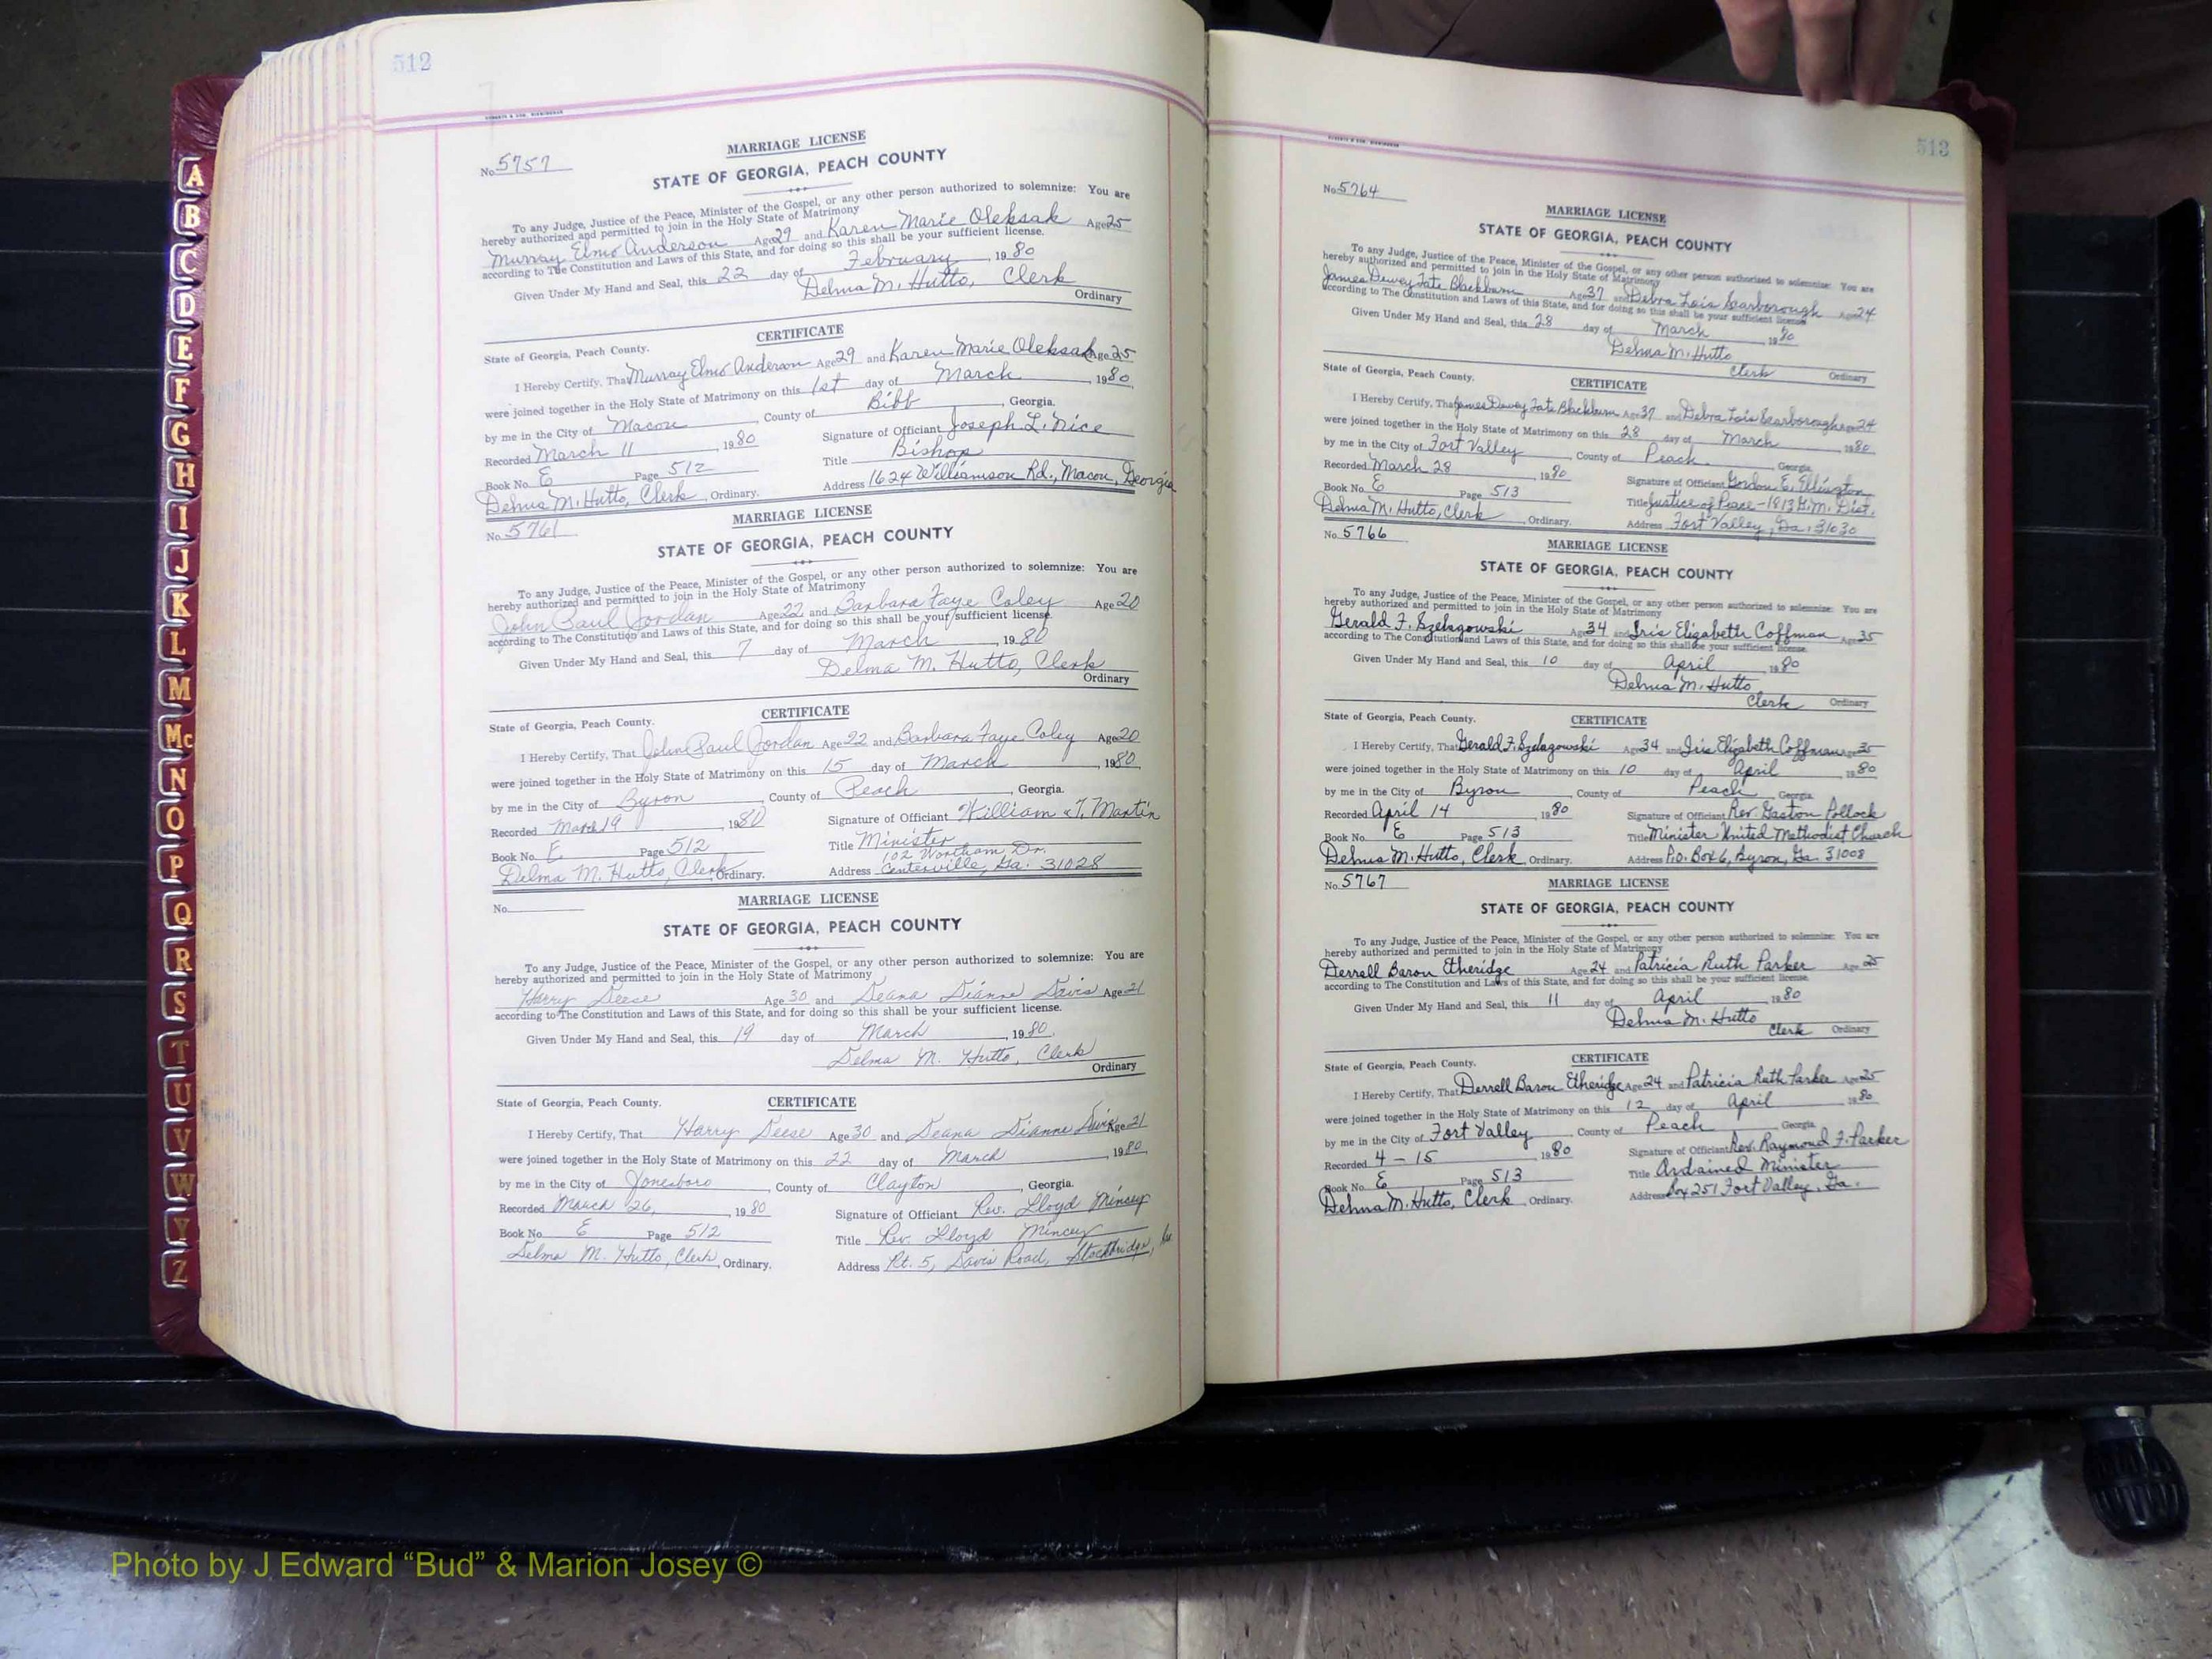 512
ROBERTS & SON, BIRMINGHAM
MARRIAGE LICENSE
No. 5757
STATE OF GEORGIA, PEACH COUNTY
To any Judge, Justice of the Peace, Minister of the Gospel, or any other person authorized to solemnize: You are
hereby authorized and permitted to join in the Holy State of Matrimony
Murray Elmo Anderson Age 29 and Karen Marie Oleksak Age 25
according to The Constitution and Laws of this State, and for doing so this shall be your sufficient license.
Given Under My Hand and Seal, this 22 day of February, 1980
Delma M. Hutto, Clerk
Ordinary
CERTIFICATE
State of Georgia, Peach County.
I Hereby Certify, That Murray Elmo Anderson Age 29 and Karen Marie Oleksak Age 25
were joined together in the Holy State of Matrimony on this 1st day of March, 1980
by me in the City of Macon, County of Bibb, Georgia.
Recorded March 11, 1980 Signature of Officiant Joseph L. Nice
Book No. E Page 512 Title Bishop
Delma M. Hutto, Clerk, Ordinary. Address 1624 Williamson Rd., Macon, Georgia
No. 5761
MARRIAGE LICENSE
STATE OF GEORGIA, PEACH COUNTY
To any Judge, Justice of the Peace, Minister of the Gospel, or any other person authorized to solemnize: You are
hereby authorized and permitted to join in the Holy State of Matrimony
John Paul Jordan Age 22 and Barbara Faye Coley Age 20
according to The Constitution and Laws of this State, and for doing so this shall be your sufficient license.
Given Under My Hand and Seal, this 7 day of March, 1980
Delma M. Hutto, Clerk
Ordinary
CERTIFICATE
State of Georgia, Peach County.
I Hereby Certify, That John Paul Jordan Age 22 and Barbara Faye Coley Age 20
were joined together in the Holy State of Matrimony on this 15 day of March, 1980
by me in the City of Byron, County of Peach, Georgia.
Recorded 19, 1980 Signature of Officiant William T. Martin
Book No. E Page 512 Title Minister
102 Wortham Dr.
Delma M. Hutto, Clerk, Ordinary. Address Centerville, Ga. 31028
No.
MARRIAGE LICENSE
STATE OF GEORGIA, PEACH COUNTY
To any Judge, Justice of the Peace, Minister of the Gospel, or any other person authorized to solemnize: You are
hereby authorized and permitted to join in the Holy State of Matrimony
Harry Deese Age 30 and Deana Dianne Davis Age 21
according to The Constitution and Laws of this State, and for doing so this shall be your sufficient license.
Given Under My Hand and Seal, this 19 day of March, 1980.
Delma M. Hutto, Clerk
Ordinary
CERTIFICATE
State of Georgia, Peach County.
I Hereby Certify, That Harry Deese Age 30 and Deana Dianne Davis Age 21
were joined together in the Holy State of Matrimony on this 22 day of March, 1980
by me in the City of Jonesboro, County of Clayton, Georgia.
Recorded March 26, 1980 Signature of Officiant Rev. Lloyd Mincey
Book No. E Page 512 Title Rev. Lloyd Mincey
Delma M. Hutto, Clerk, Ordinary. Address Rt. 5, Davis Road, Stockbridge, Ga
513
ROBERTS & SON, BIRMINGHAM
No. 5764
MARRIAGE LICENSE
STATE OF GEORGIA, PEACH COUNTY
To any Judge, Justice of the Peace, Minister of the Gospel, or any other person authorized to solemnize: You are
hereby authorized and permitted to join in the Holy State of Matrimony
James Dewey Tate Blackburn Age 37 and Debra Lois Scarborough Age 24
according to The Constitution and Laws of this State, and for doing so this shall be your sufficient license.
Given Under My Hand and Seal, this 28 day of March 1980
Delma M. Hutto
Clerk Ordinary
State of Georgia, Peach County. CERTIFICATE
I Hereby Certify, That James Dewey Tate Blackburn Age 37 and Debra Lois Scarborough Age 24
were joined together in the Holy State of Matrimony on this 28 day of March, 1980
by me in the City of Fort Valley, County of Peach, Georgia.
Recorded March 28, 1980 Signature of Officiant Gordon E. Ellington
Book No. E Page 513 Title Justice of Peace - 1813 G.M. Dist.
Delma M. Hutto, Clerk, Ordinary. Address Fort Valley, Ga. 31030
No. 5766
MARRIAGE LICENSE
STATE OF GEORGIA, PEACH COUNTY
To any Judge, Justice of the Peace, Minister of the Gospel, or any other person authorized to solemnize: You are
hereby authorized and permitted to join in the Holy State of Matrimony
Gerald F. Szelagowski Age 34 and Iris Elizabeth Coffman Age 35
according to The Constitution and Laws of this State, and for doing so this shall be your sufficient license.
Given Under My Hand and Seal, this 10 day of April, 1980
Delma M. Hutto
Clerk Ordinary
State of Georgia, Peach County. CERTIFICATE
I Hereby Certify, That Gerald F. Szelagowski Age 34 and Iris Elizabeth Coffman Age 35
were joined together in the Holy State of Matrimony on this 10 day of April, 1980
by me in the City of Byron, County of Peach, Georgia.
Recorded April 14, 1980 Signature of Officiant Rev. Gaston Pollock
Book No. E Page 513 Title Minister United Methodist Church
Delma M. Hutto, Clerk, Ordinary. Address P.O. Box 6, Byron, Ga. 31008
No. 5767
MARRIAGE LICENSE
STATE OF GEORGIA, PEACH COUNTY
To any Judge, Justice of the Peace, Minister of the Gospel, or any other person authorized to solemnize: You are
hereby authorized and permitted to join in the Holy State of Matrimony
Derrell Baron Etheridge Age 24 and Patricia Ruth Parker Age 25
according to The Constitution and Laws of this State, and for doing so this shall be your sufficient license.
Given Under My Hand and Seal, this 11 day of April, 1980
Delma M. Hutto
Clerk Ordinary
State of Georgia, Peach County. CERTIFICATE
I Hereby Certify, That Derrell Baron Etheridge Age 24 and Patricia Ruth Parker Age 25
were joined together in the Holy State of Matrimony on this 12 day of April, 1980
by me in the City of Fort Valley, County of Peach, Georgia.
Recorded 4-15, 1980 Signature of Officiant Rev. Raymond F. Parker
Book No. E Page 513 Title Ordained Minister
Delma M. Hutto, Clerk, Ordinary. Address Box 251 Fort Valley, Ga.
A
B
C
D
E
F
G
H
I
J
K
L
M
Mc
N
O
P
Q
R
S
T
U
V
W
Y
Z
Photo by J Edward “Bud” & Marion Josey ©